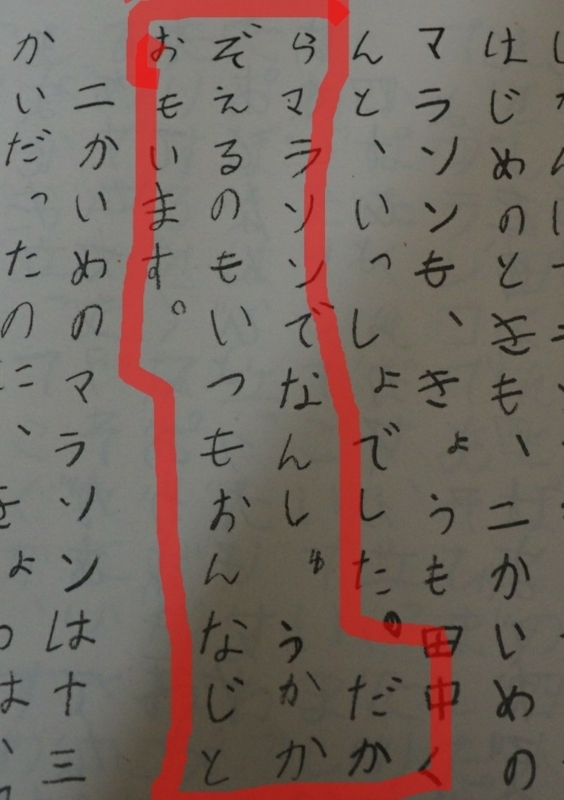 はじめのときも、二かいめの
マラソンも、きょうも田中く
んと、いっしょでした。だか
らマラソンでなんしゅうかか
ぞえるのもいつもおんなじと
おもいます。
二かいめのマラソンは十三
かいだったのに、きょうは、